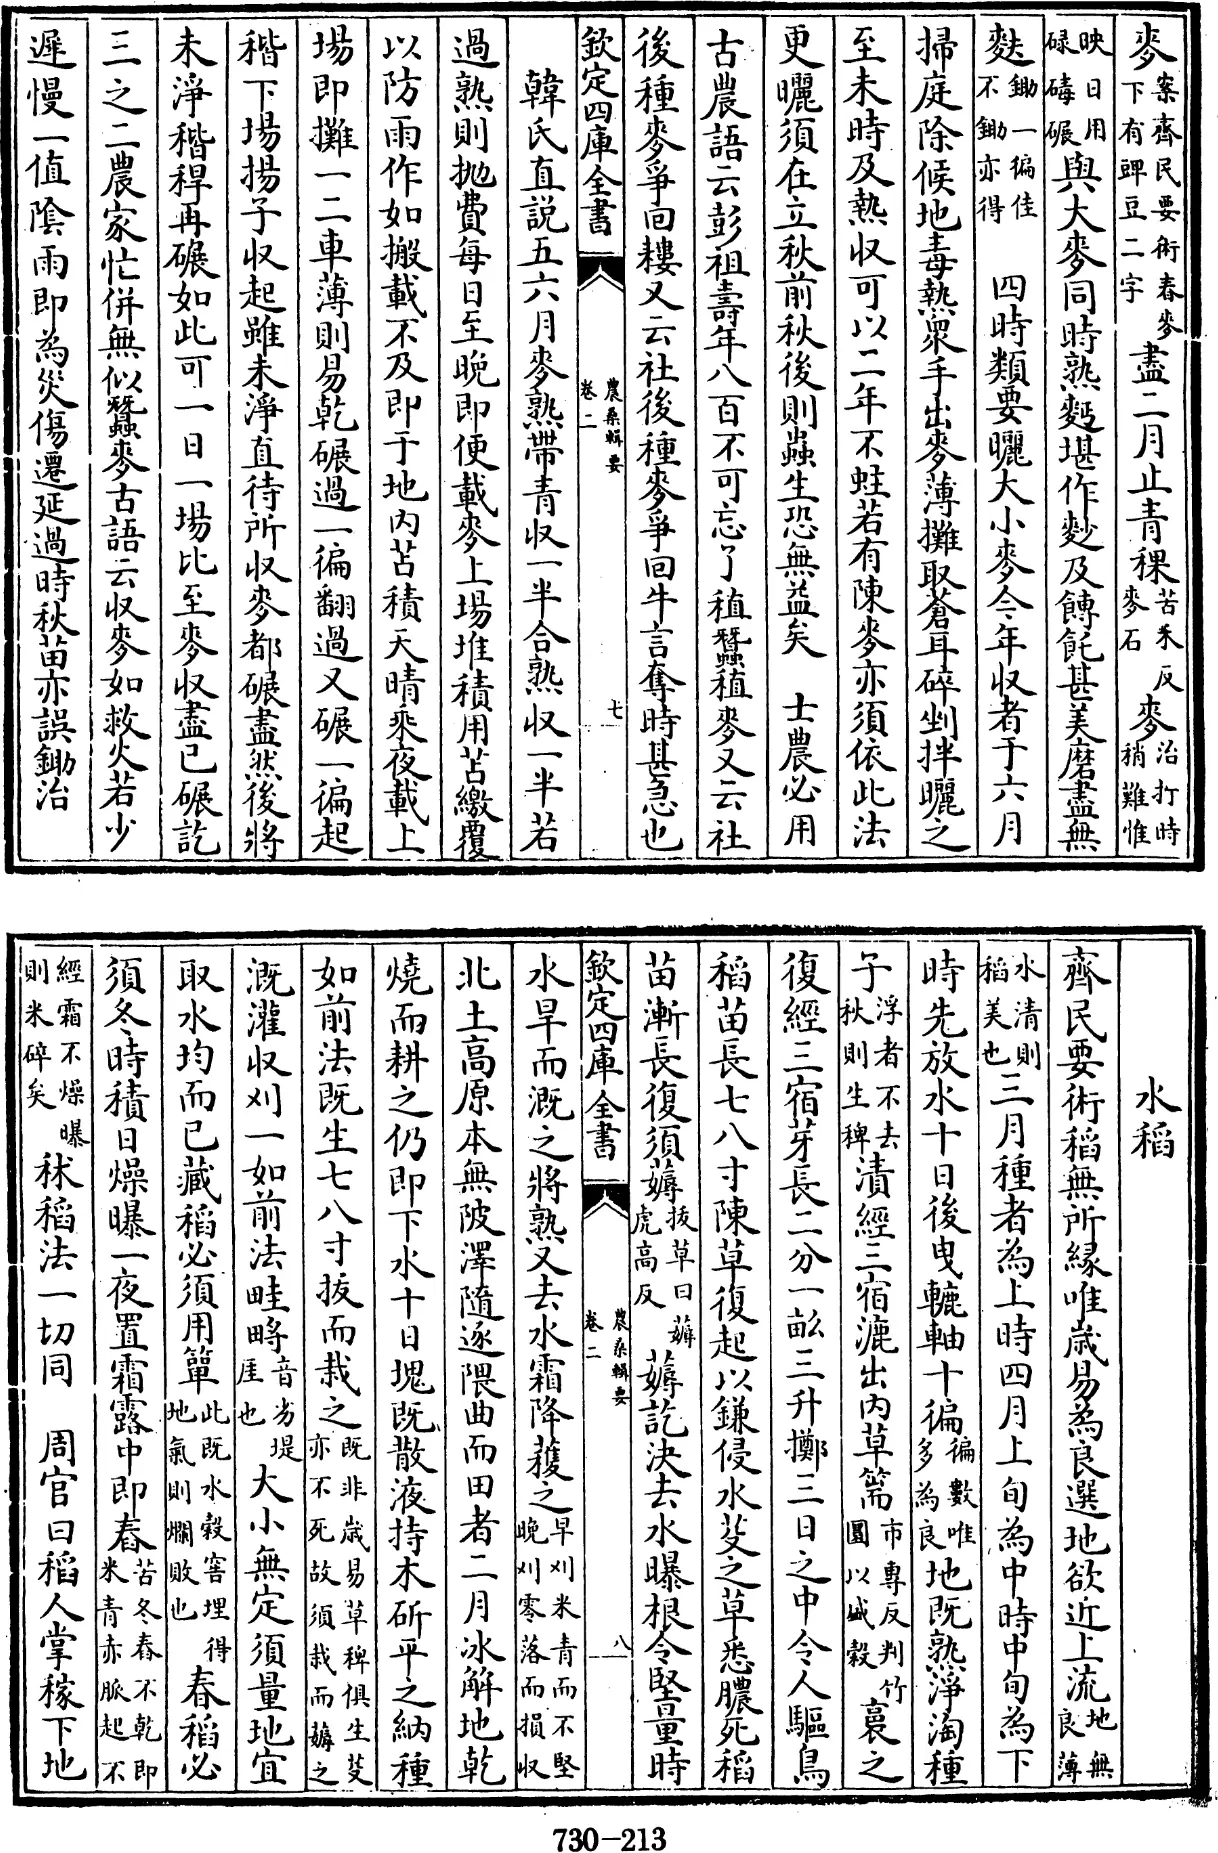 麥案齊民要術春麥下有䜺豆二字盡二月止青稞苦禾反麥石麥治打時稍難惟
映日用碌碡碾與大麥同時熟麪堪作麨及餺飥甚美磨盡無
麩鋤一徧佳不鋤亦得　四時類要曬大小麥今年收者于六月
掃庭除候地毒熱衆手出麥薄攤取蒼耳碎剉拌曬之
至未時及熱收可以二年不蛀若有陳麥亦須依此法
更曬須在立秋前秋後則蟲生恐無益矣　士農必用
古農語云彭祖壽年八百不可忘了植蠶植麥又云社
後種麥爭回耬又云社後種麥爭回牛言奪時甚急也
欽定四庫全書　農桑輯要卷二　七
韓氏直説五六月麥熟帶青收一半合熟收一半若
過熟則抛費每日至晚即便載麥上場堆積用苫繳覆
以防雨作如搬載不及即于地内苫積天晴乘夜載上
場即攤一二車薄則易乾碾過一徧翻過又碾一徧起
稭下場揚子收起雖未淨直待所收麥都碾盡然後將
未淨稭稈再碾如此可一日一場比至麥收盡已碾訖
三之二農家忙併無似蠶麥古語云收麥如救火若少
遲慢一值隂雨即為災傷遷延過時秋苗亦誤鋤治
水稻
齊民要術稻無所緣唯嵗易為良選地欲近上流地無良薄
水清則稻美也三月種者為上時四月上旬為中時中旬為下
時先放水十日後曳轆軸十徧徧數唯多為良地既熟淨淘種
子浮者不去秋則生稗漬經三宿漉出内草篅市專反判竹圓以盛穀裛之
復經三宿芽長二分一畝三升擲三日之中令人驅鳥
稻苗長七八寸陳草復起以鎌侵水芟之草悉膿死稻
苗漸長復須薅拔草曰薅虎高反薅訖決去水曝根令堅量時
欽定四庫全書　農桑輯要卷二　八
水旱而溉之將熟又去水霜降穫之早刈米青而不堅晚刈零落而損收
北土高原本無陂澤隨逐隈曲而田者二月冰解地乾
燒而耕之仍即下水十日塊既散液持木斫平之納種
如前法既生七八寸拔而栽之既非嵗易草稗俱生芟亦不死故須栽而薅之
溉灌收刈一如前法畦畤音劣堤厓也大小無定須量地宜
取水均而已藏稻必須用簞此既水穀窖埋得地氣則爛敗也舂稻必
須冬時積日燥曝一夜置霜露中即舂苦冬舂不乾即米青赤脈起不
經霜不燥曝則米碎矣秫稻法一切同　周官曰稻人掌稼下地
730-213